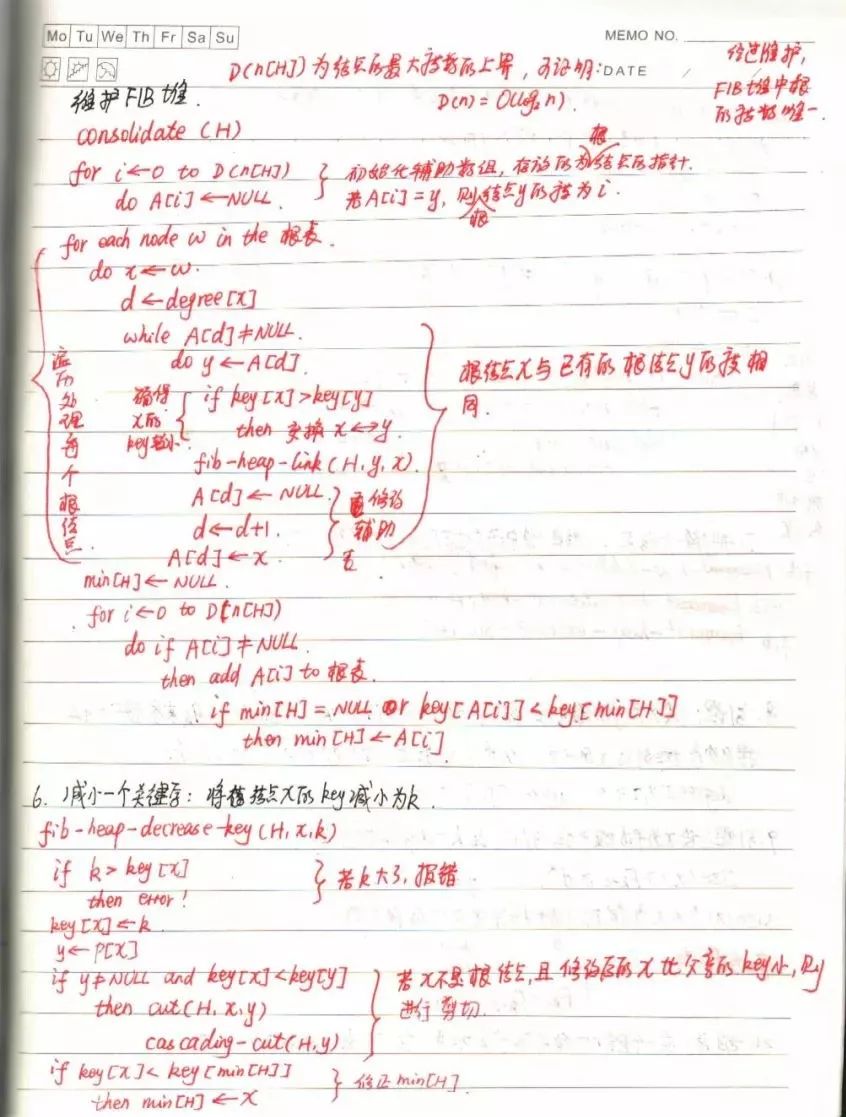 Mo Tu We Th Fr Sa Su
MEMO NO.
DATE / /
D(n[H])为结点的最大度数的上界,可证明:
D(n) = O(log₂n).
经过维护,
FIB堆中根
的度数唯一.
维护FIB堆.
consolidate (H)
for i←0 to D(n[H])
do A[i]←NULL.
初始化辅助数组,存放的为根结点的指针.
若A[i]=y,则根结点y的度为i.
for each node w in the 根表.
do x←w.
d←degree[x]
while A[d]≠NULL.
do y←A[d].
if key[x]>key[y]
then 交换 x↔y.
fib-heap-link(H,y,x).
A[d]←NULL.
d←d+1.
A[d]←x.
遍历处理每个根结点.
确保
x的
key较小
修改
辅助
表
根结点x与已有的根结点y的度相
同.
min[H]←NULL.
for i←0 to D(n[H])
do if A[i]≠NULL.
then add A[i] to 根表.
if min[H]=NULL or key[A[i]]<key[min[H]]
then min[H]←A[i]
6. 减小一个关键字: 将结点x的key减小为k.
fib-heap-decrease-key(H,x,k)
if k>key[x]
then error!
若k大了,报错
key[x]←k.
y←P[x]
if y≠NULL and key[x]<key[y]
then cut(H,x,y)
cascading-cut(H,y)
若x不是根结点,且修改后的x比父亲的key小,则
进行剪切.
if key[x]<key[min[H]]
then min[H]←x
修正min[H]